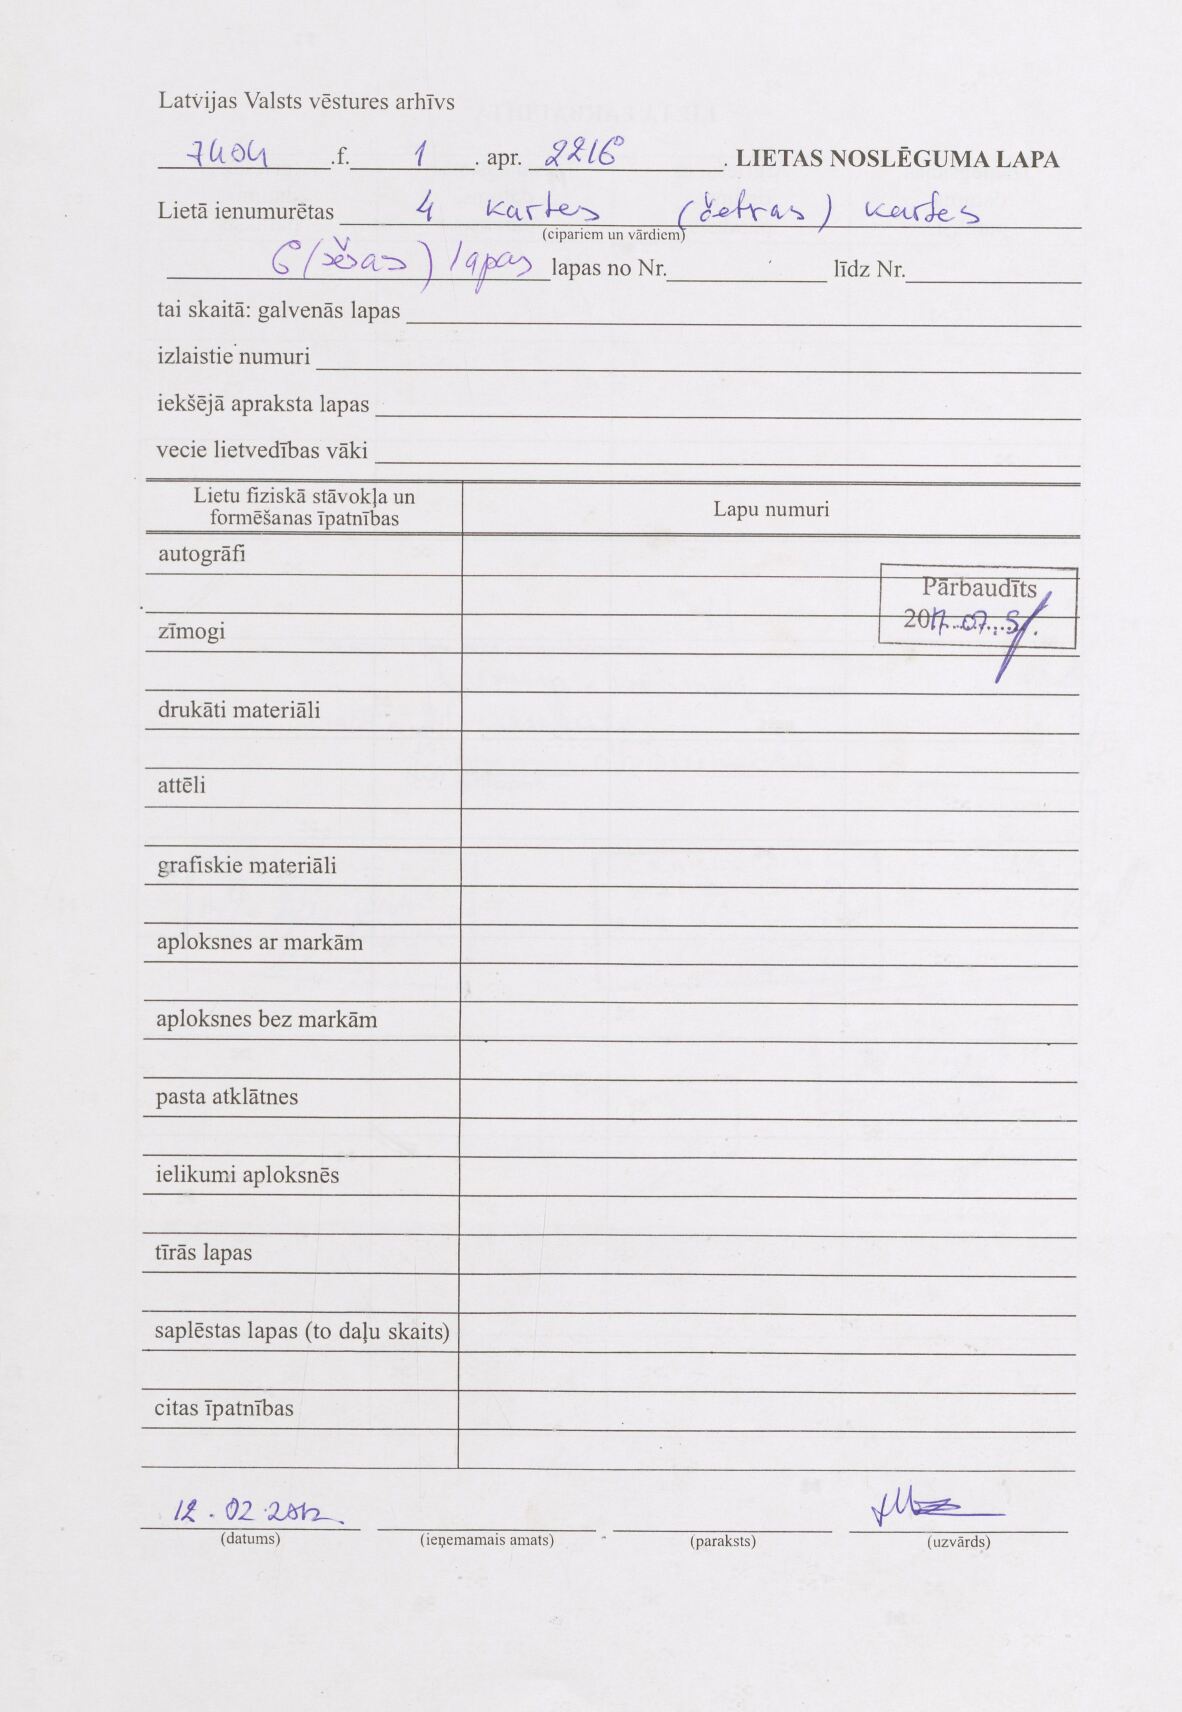 Latvijas Valsts vēstures arhīvs
7404 .f. 1 . apr. 2216 . LIETAS NOSLĒGUMA LAPA
Lietā ienumurētas 4 kartes (četras) kartes
(cipariem un vārdiem)
6 (sešas) lapas lapas no Nr. līdz Nr.
tai skaitā: galvenās lapas
izlaistie numuri
iekšējā apraksta lapas
vecie lietvedības vāki
Lietu fiziskā stāvokļa un
formēšanas īpatnības
Lapu numuri
autogrāfi
Pārbaudīts
2017.07.5.
zīmogi
drukāti materiāli
attēli
grafiskie materiāli
aploksnes ar markām
aploksnes bez markām
pasta atklātnes
ielikumi aploksnēs
tīrās lapas
saplēstas lapas (to daļu skaits)
citas īpatnības
12.02.2012.
(datums) (ieņemamais amats) (paraksts) (uzvārds)